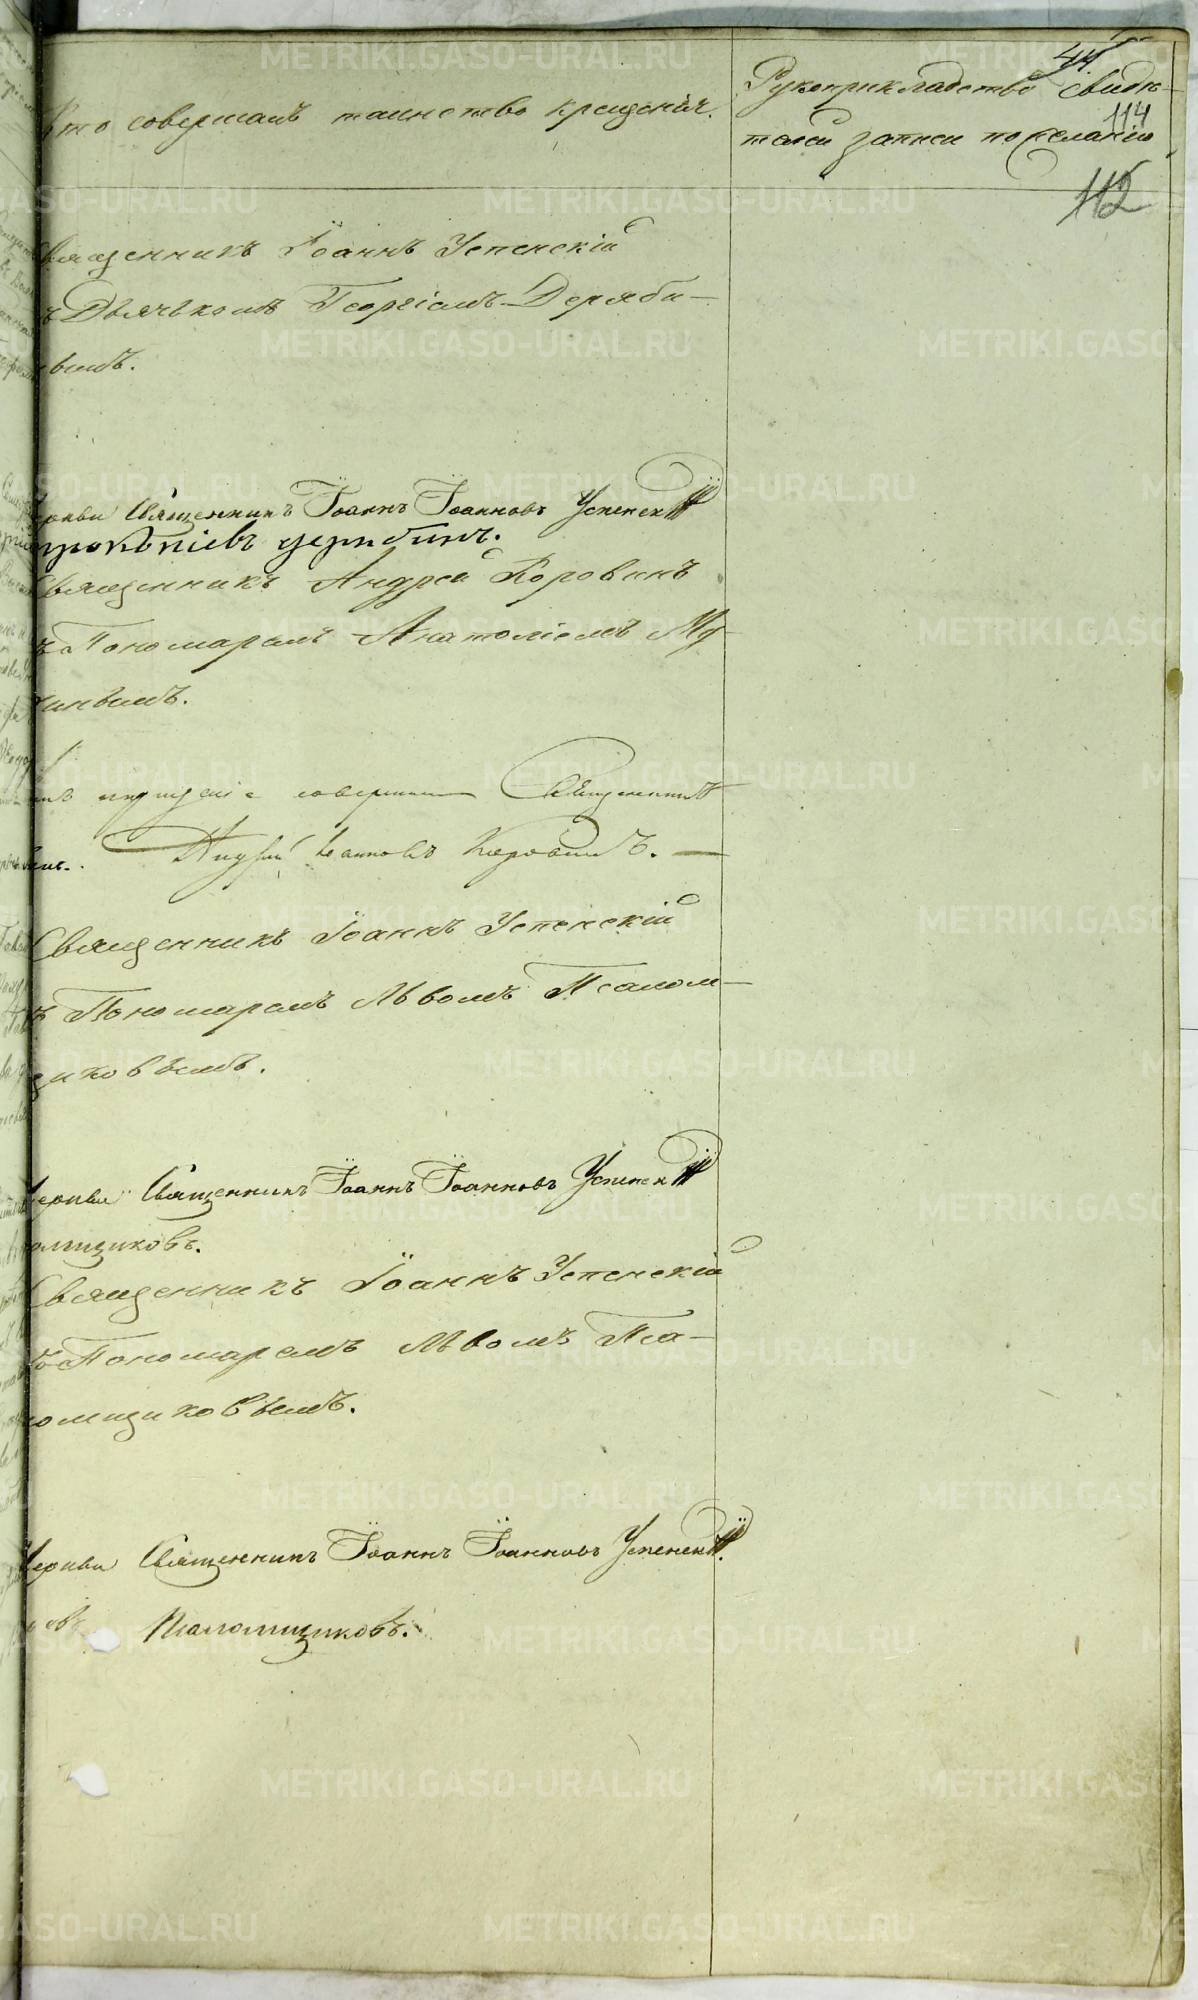 44.
114
112
Кто совершалъ таинство крещенія.
Рукоприкладство свидѣ-
телей записи по желанію
Священникъ Іоаннъ Успенскій
съ Дьячькомъ Георгіемъ Деряби-
нымъ.
церкви Священникъ Іоаннъ Іоанновъ Успенскій
Прокопіевъ дерябинъ.
Священникъ Андрей Коровинъ
съ Пономаремъ Анатоліемъ Му-
нымъ.
совершилъ Священникъ
Андрей Іоанновъ Коровинъ. —
Священникъ Іоаннъ Успенскій
съ Пономаремъ Львомъ Псалом-
щиковымъ.
церкви Священникъ Іоаннъ Іоанновъ Успенскій
омщиковъ.
Священникъ Іоаннъ Успенскій
съ Пономаремъ Львомъ Пса-
ломщиковымъ.
церкви Священникъ Іоаннъ Іоанновъ Успенскій.
Псаломщиковъ.
METRIKI.GASO-URAL.RU